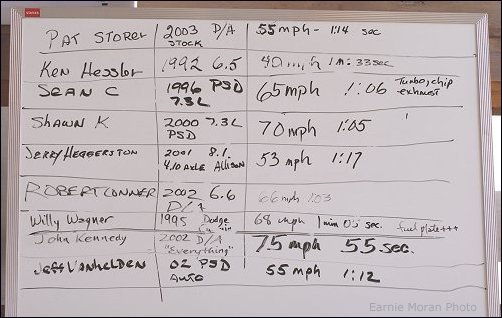 PAT STORER 2003 D/A STOCK 55 mph - 1:14 sec
Ken Hessler 1992 6.5 40 mph 1m:33sec
SEAN C 1996 PSD 7.3L 65mph 1:06 Turbo, chip exhaust
SHAWN K 2000 7.3L PSD 70mph 1:05
JERRY HEGGERSTON 2001 8.1. 4.10 AXLE ALLISON 53 mph 1:17
ROBERT CONNER 2002 6.6 D/A 66 mph 1:03
Willy Wagner 1995 Dodge 68 mph 1 min 05 sec. fuel plate+++
John Kennedy 2002 D/A "Everything" 75 mph 55 sec.
Jeff VanhelDEN 02 PSD Auto 55 mph 1:12
Earnie Moran Photo